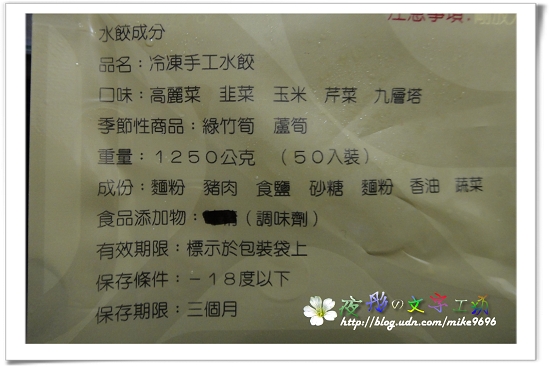 注意事項:
水餃成分
品名：冷凍手工水餃
口味：高麗菜 韭菜 玉米 芹菜 九層塔
季節性商品：綠竹筍 蘆筍
重量：1250公克 （50入裝）
成份：麵粉 豬肉 食鹽 砂糖 麵粉 香油 蔬菜
食品添加物：（調味劑）
有效期限：標示於包裝袋上
保存條件：－18度以下
保存期限：三個月
夜彤の文字工坊
http://blog.udn.com/mike9696